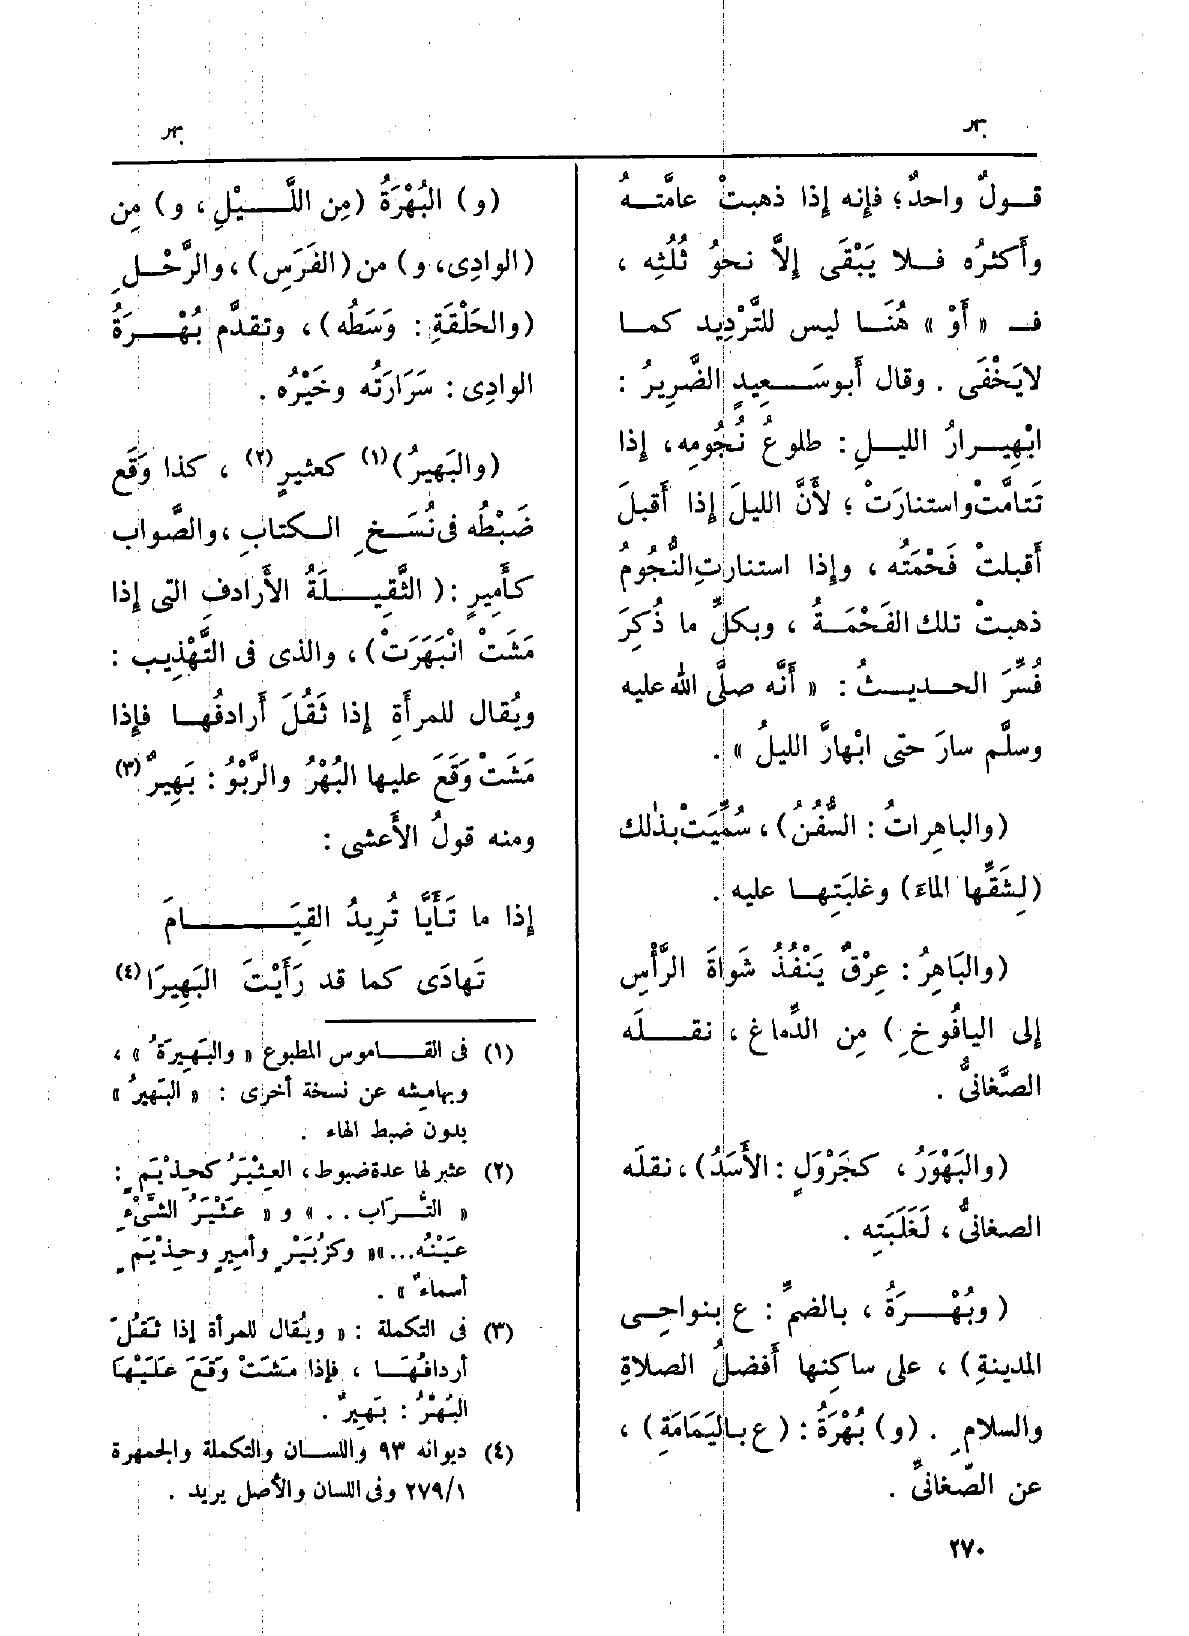 بهر
بهر
قولٌ واحدٌ؛ فإنه إذا ذهبتْ عامَّتهُ
وأكثرُه فلا يَبْقَى إلاَّ نحوُ ثُلُثِه ،
فـ « أَوْ » هُنَا ليس للتَّرْدِيد كما
لايَخْفَى . وقال أَبوسَعِيدٍ الضَّرِيرُ :
ابْهِيرارُ الليلِ : طلوعُ نُجُومِه، إذا
تَتامَّتْ واستنارَتْ ؛ لأَنَّ الليلَ إذا أَقبلَ
أَقبلتْ فَحْمَتُه ، وإذا استنارتِ النُّجُومُ
ذهبتْ تلك الفَحْمَةُ ، وبكلٍّ ما ذُكِرَ
فُسِّرَ الحديثُ : « أَنَّه صلَّى الله عليه
وسلَّم سارَ حتى ابْهارَّ الليلُ » .
(والباهِراتُ : السُّفُنُ) ، سُمِّيَتْ بذٰلك
(لِشَقِّها الماءَ) وغلبَتِها عليه .
(والبَاهِرُ : عِرْقٌ يَنْفُذُ شَواةَ الرَّأْسِ
إلى اليافُوخِ) مِن الدِّماغِ ، نقلَه
الصَّغانىُّ .
(والبَهْوَرُ ، كجَرْوَلٍ : الأَسَدُ) ، نقلَه
الصغانىُّ ، لغَلَبَتِه .
(وبُهْرَةُ ، بالضمِّ : ع بنواحِى
المدينةِ) ، على ساكنِها أَفضلُ الصلاةِ
والسلامِ . (و) بُهْرَةُ : (ع باليَمَامَةِ) ،
عن الصّغانىِّ .
(و) البُهْرَةُ (مِن اللَّيْلِ ، و) مِن
(الوادِى، و) من (الفَرَسِ) ، والرَّحْلِ
(والحَلْقَةِ : وَسَطُه) ، وتقدَّم بُهْرَةُ
الوادِى : سَرَارَتُه وخَيْرُه .
(والبَهيرُ)(١) كعثيرٍ(٢) ، كذا وَقَع
ضَبْطُه فى نُسَخِ الكتابِ ، والصَّواب
كأَمِيرٍ : ( الثَّقِيلَةُ الأَرادفِ التى إذا
مَشَتْ انْبَهَرَتْ) ، والذى فى التَّهْذِيب :
ويُقال للمرأَةِ إذا ثَقُلَ أَرادفُها فإذا
مَشَتْ وَقَعَ عليها البُهْرُ والرَّبْوُ : بَهِيرٌ(٣)
ومنه قولُ الأَعشى :
إذا ما تَأَيَّا تُرِيدُ القِيَامَ
تَهادَى كما قد رَأَيْتَ البَهِيرَا(٤)
(١) فى القاموس المطبوع « والبَهِيرَةُ » ،
وبهامشه عن نسخة أخرى : « البَهيرُ »
بدون ضبط الهاء .
(٢) عثير لها عدة ضبوط ، العِثْيَرُ كحِذْيَمٍ :
« التُّرَاب . . » و « عَثْيَرُ الشَّىْءِ
عَيْنُه...»« وكزُبَيْرٍ وأميرٍ وحِذْيَمٍ
أسماءٌ » .
(٣) فى التكملة : « ويُقال للمرأة إذا ثَقُلَ
أردافُهَا ، فإذا مَشَتْ وَقَعَ عَلَيْهَا
البَهْرُ : بَهِيرٌ .
(٤) ديوانه ٩٣ واللسان والتكملة والجمهرة
٢٧٩/١ وفى اللسان والأصل يريد .
٢٧٠